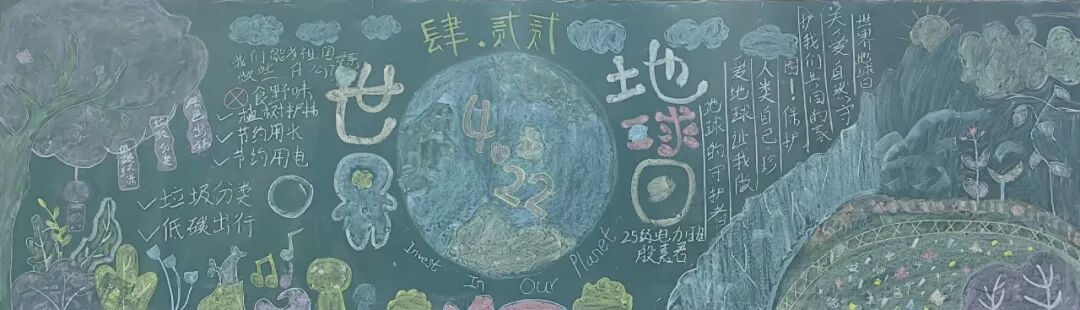 肆.贰贰
世界
地球日
4.22
Invest In Our Planet
我们能为祖国
做些什么?
食野味
植树护林
节约用水
节约用电
垃圾分类
低碳出行
世界地球日
关爱自然,守
护我们共同的家
园!保护
人类自己,珍
爱地球让我做
地球的守护者
25级电力
殷嘉君